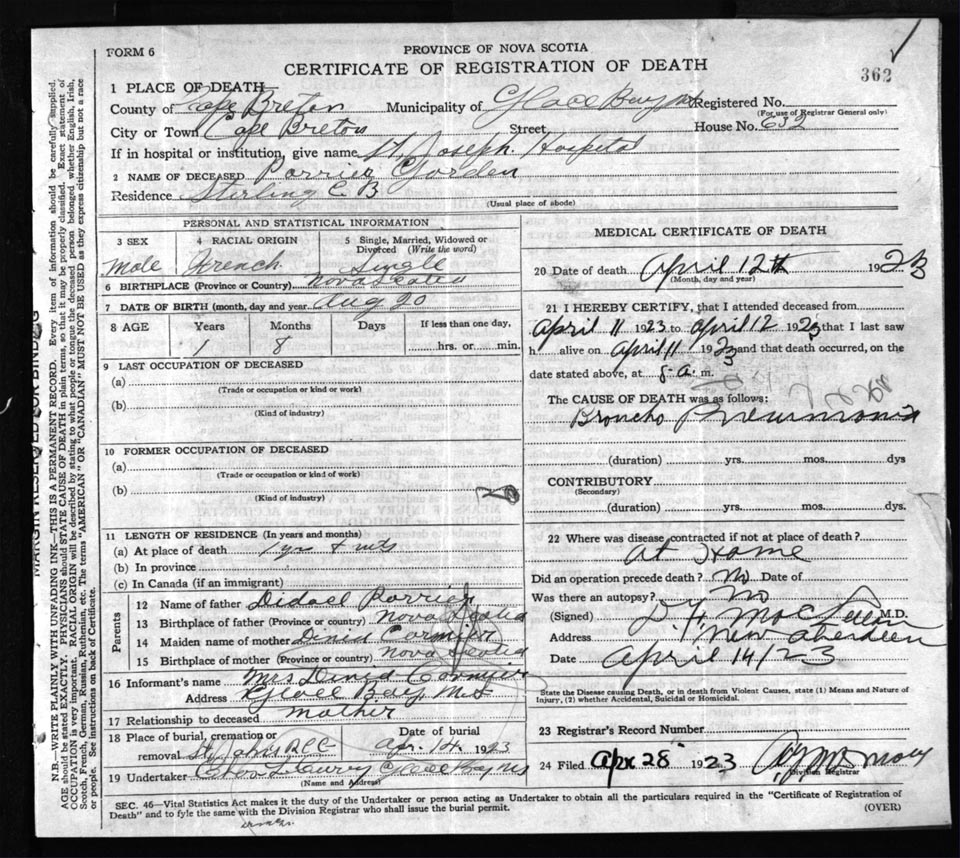 FORM 6
PROVINCE OF NOVA SCOTIA
CERTIFICATE OF REGISTRATION OF DEATH
362
1 PLACE OF DEATH
County of Cape Breton Municipality of Glace Bay NS Registered No.
(For use of Registrar General only)
City or Town Cape Breton Street House No. 632
If in hospital or institution, give name St. Joseph Hospital
2 NAME OF DECEASED Porrier Gorden
Residence Sterling C B
(Usual place of abode)
PERSONAL AND STATISTICAL INFORMATION
3 SEX 4 RACIAL ORIGIN 5 Single, Married, Widowed or Divorced (Write the word)
Male French Single
6 BIRTHPLACE (Province or Country) Nova Scotia
7 DATE OF BIRTH (month, day and year) Aug 20
8 AGE Years Months Days If less than one day,
1 8 hrs. or min.
9 LAST OCCUPATION OF DECEASED
(a)
(Trade or occupation or kind or work)
(b)
(Kind of industry)
10 FORMER OCCUPATION OF DECEASED
(a)
(Trade or occupation or kind of work)
(b)
(Kind of industry)
11 LENGTH OF RESIDENCE (In years and months)
(a) At place of death 1 yr
(b) In province
(c) In Canada (if an immigrant)
Parents
12 Name of father Porrier
13 Birthplace of father (Province or country) Nova Scotia
14 Maiden name of mother Cormier
15 Birthplace of mother (Province or country) Nova Scotia
16 Informant's name Mrs Cormier
Address Glace Bay NS
17 Relationship to deceased mother
18 Place of burial, cremation or Date of burial
removal Apr. 14 1923
19 Undertaker Glace Bay NS
(Name and Address)
MEDICAL CERTIFICATE OF DEATH
20 Date of death April 12th 1923
(Month, day and year)
21 I HEREBY CERTIFY, that I attended deceased from
April 11 1923 to April 12 1923 that I last saw
h alive on April 11 1923 and that death occurred, on the
date stated above, at 8 a. m.
The CAUSE OF DEATH was as follows:
Broncho Pneumonia
(duration) yrs. mos. dys
CONTRIBUTORY
(Secondary)
(duration) yrs. mos. dys.
22 Where was disease contracted if not at place of death?
At Home
Did an operation precede death? No Date of
Was there an autopsy? No
(Signed) M.D.
Address New Aberdeen
Date April 14/23
State the Disease causing Death, or in death from Violent Causes, state (1) Means and Nature of
Injury, (2) whether Accidental, Suicidal or Homicidal.
23 Registrar's Record Number
24 Filed Apr 28 1923
Division Registrar
SEC. 46—Vital Statistics Act makes it the duty of the Undertaker or person acting as Undertaker to obtain all the particulars required in the "Certificate of Registration of
Death" and to fyle the same with the Division Registrar who shall issue the burial permit. (OVER)
N.B.—WRITE PLAINLY WITH UNFADING INK—THIS IS A PERMANENT RECORD. Every item of information should be carefully supplied.
AGE should be stated EXACTLY. PHYSICIANS should STATE CAUSE OF DEATH in plain terms, so that it may be properly classified. Exact statement of
OCCUPATION is very important. RACIAL ORIGIN will be described by stating to what people or tongue the deceased person belonged whether English, Irish,
Scotch, French, German, Russian, Ruthenian, etc. The terms "AMERICAN" OR "CANADIAN" MUST NOT BE USED as they express citizenship but not a race
or people. See instructions on back of Certificate.